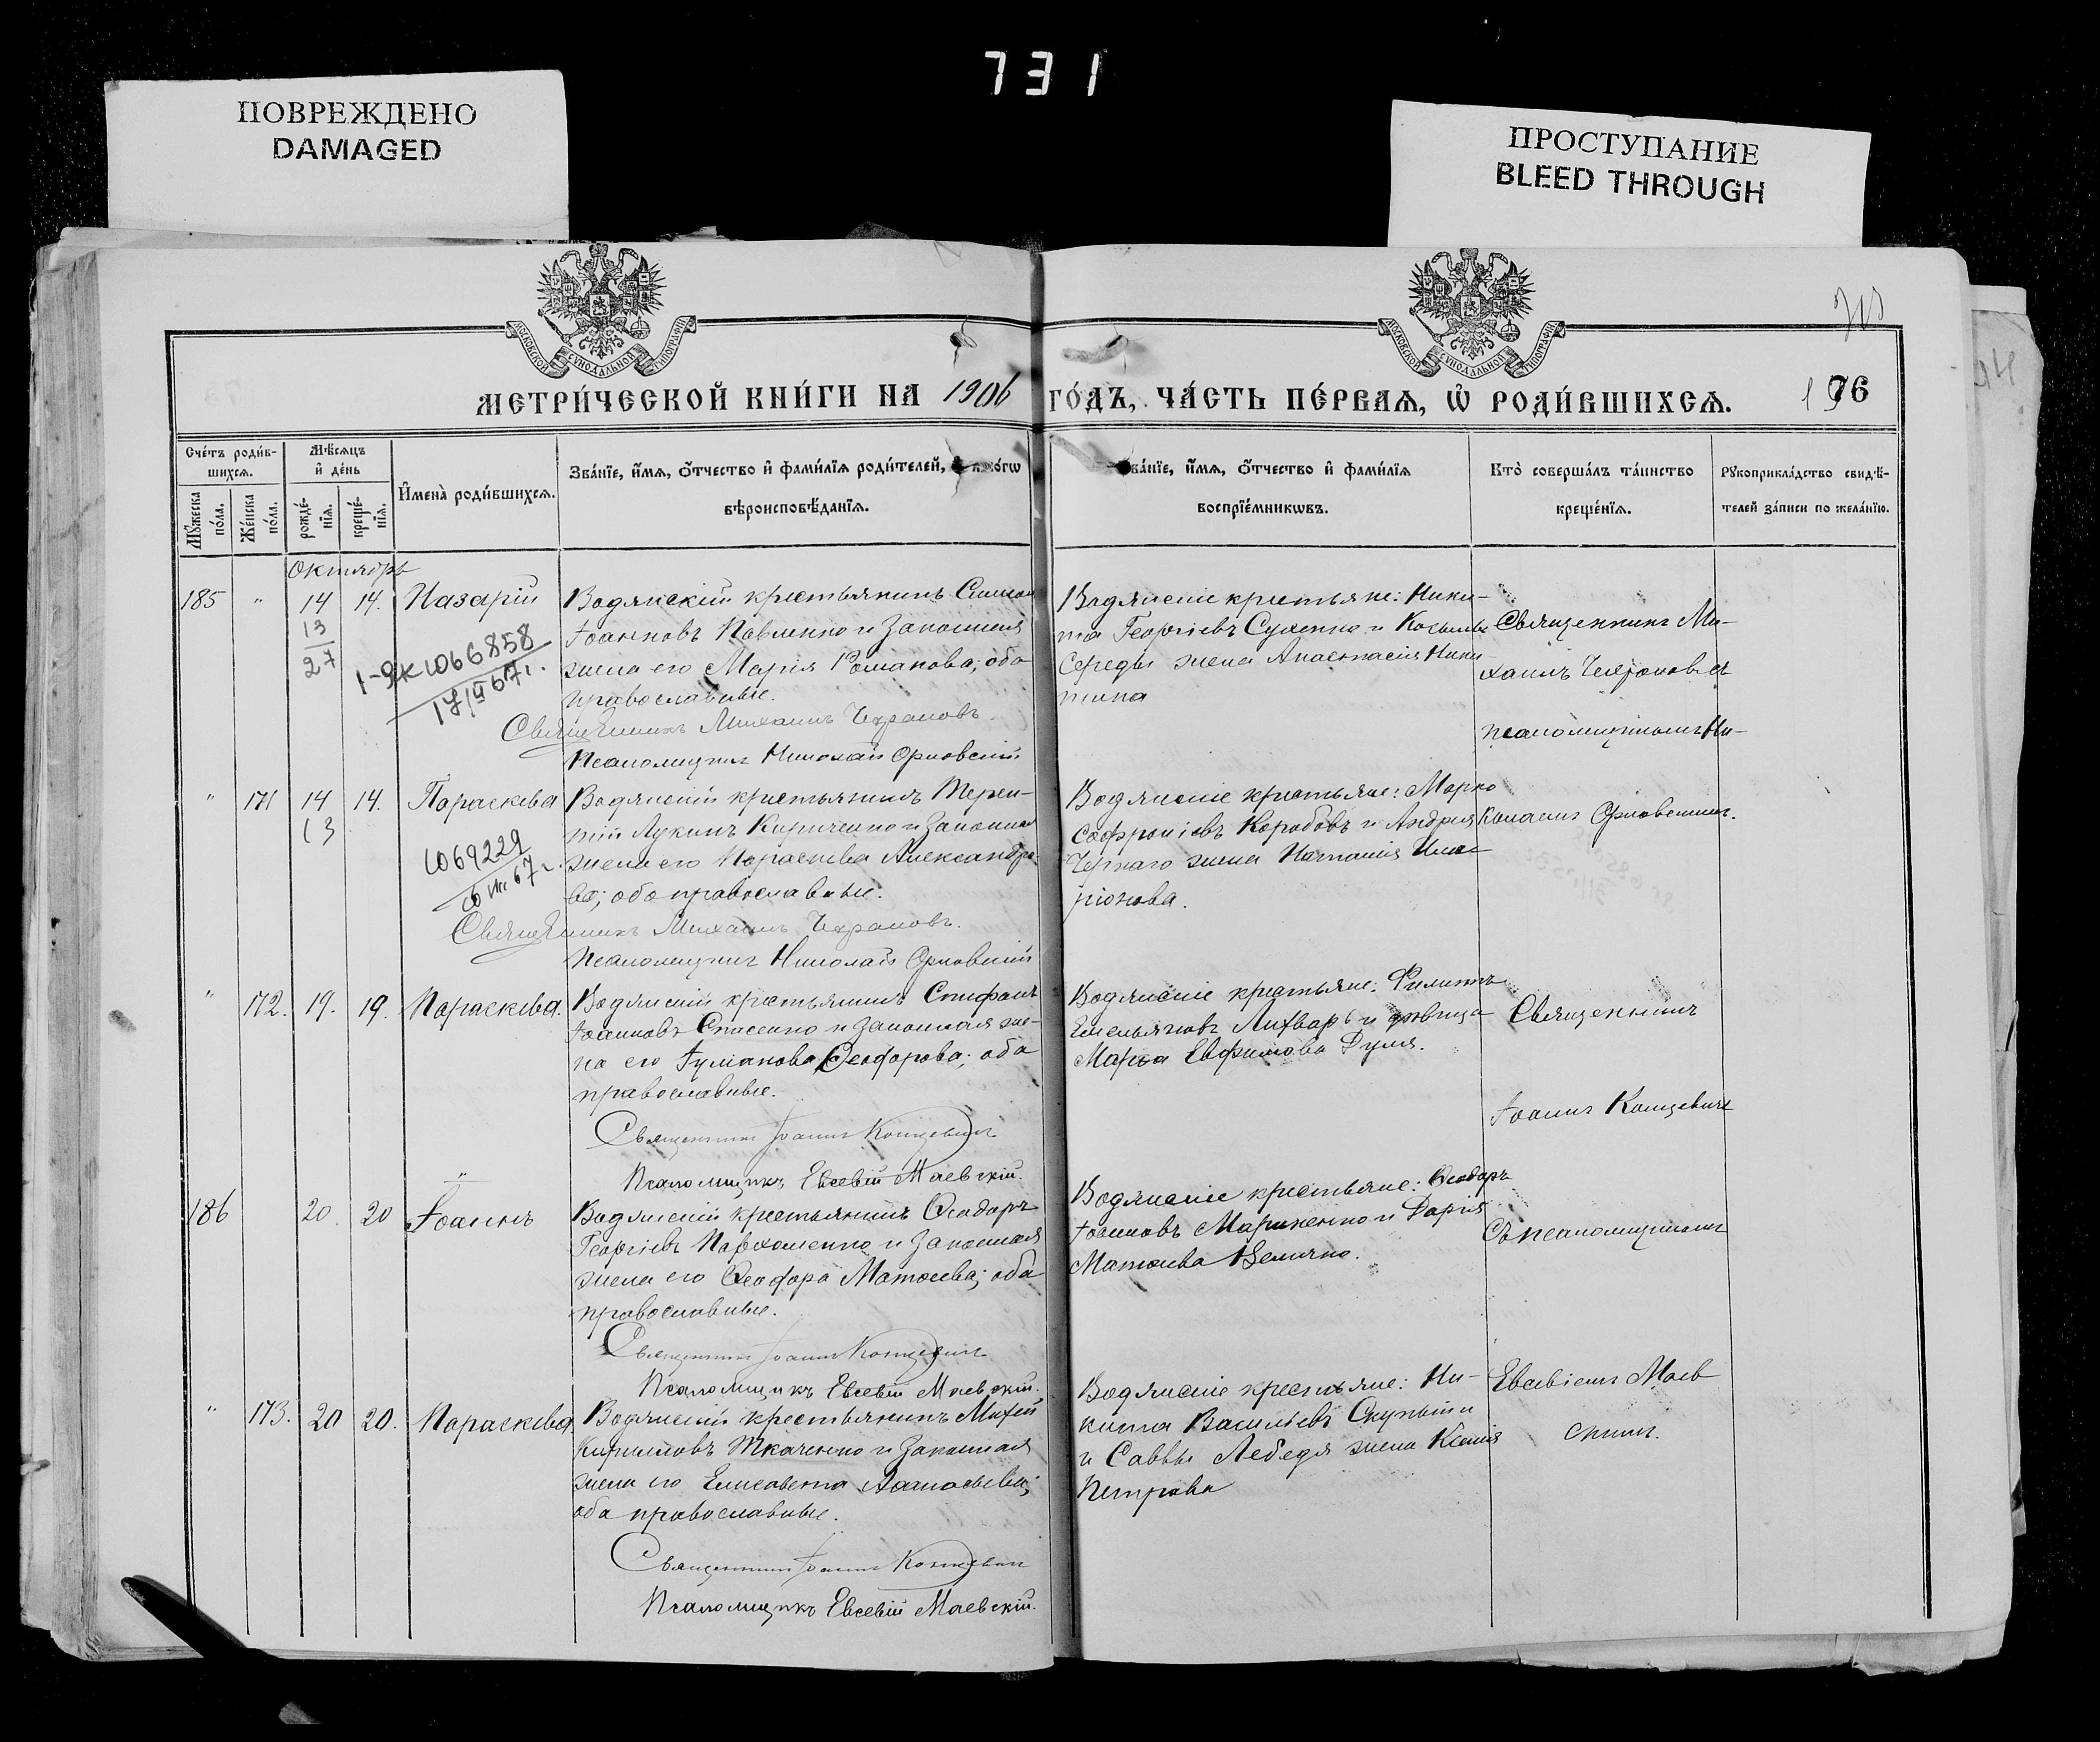 731
ПОВРЕЖДЕНО
DAMAGED
ПРОСТУПАНИЕ
BLEED THROUGH
МОСКОВСКОЙ СѴНОДАЛЬНОЙ ТИПОГРАФІИ
МОСКОВСКОЙ СѴНОДАЛЬНОЙ ТИПОГРАФІИ
МЕТРИ́ЧЕСКОЙ КНИ́ГИ НА 1906 ГО́ДЪ, ЧА́СТЬ ПЕ́РВАѦ, Ѡ РОДИ́ВШИХСѦ.
76
Сче́тъ роди́вшихсѧ.
Мꙋжеска по́ла.
Же́нска по́ла.
Мѣ́сѧцъ и де́нь
рожде́нїѧ.
креще́нїѧ.
Имена̀ роди́вшихсѧ.
Зва́нїе, и́мѧ, о́тчество и фами́лїѧ роди́телей, и
вѣроисповѣ́данїѧ.
ва́нїе, и́мѧ, о́тчество и фами́лїѧ
воспрїе́мникѡвъ.
Кто̀ соверша́лъ та́инство
креще́нїѧ.
Рꙋкоприкла́дство свидѣ́-
телей за́писи по жела́нїю.
Октябрь
185 " 14 14. Назарій
13
27
Водянскій крестьянинъ Симеон
Іоанновъ Павленко и законная
жена его Марія Романова; оба
православные.
Священникъ Михаилъ Чехрановъ.
Псаломщикъ Николай Орловскій
Водянскіе крестьяне: Ники-
та Георгіевъ Сухенко и Козьмы
Середы жена Анастасія Ники-
тина
Священникъ Ми-
хаилъ Чехрановъ съ
псаломщикомъ Ни-
" 171 14 14. Параскева
13
1069229
Водянскій крестьянинъ Терен-
тій Лукинъ Кириченко и законная
жена его Параскева Александро-
ва; оба православные.
Священникъ Михаилъ Чехрановъ.
Псаломщикъ Николай Орловскій
Водянскіе крестьяне: Марко
Софроніевъ Коробовъ и Андрея
Чернаго жена Наталія Ила-
ріонова.
колаемъ Орловскимъ.
" 172. 19. 19. Параскева.
Водянскій крестьянинъ Стефанъ
Іоанновъ Спасенко и законная же-
на его Іуліанова Ѳеодорова; оба
православные.
Священникъ Іоаннъ Концевичъ
Псаломщикъ Евсевій Маевскій.
Водянскіе крестьяне: Филиппъ
Емельяновъ Литваръ и дѣвица
Марѳа Евфимова Дуля.
Священникъ
Іоаннъ Концевичъ
186 " 20. 20 Іоаннъ
Водянскій крестьянинъ Ѳеодоръ
Георгіевъ Пархоменко и законная
жена его Ѳеодора Матѳеева; оба
православные.
Священникъ Іоаннъ Концевичъ
Псаломщикъ Евсевій Маевскій.
Водянскіе крестьяне: Ѳеодоръ
Іоанновъ Мариненко и Дарія
Матѳеева Величко.
Съ псаломщикомъ
" 173. 20 20. Параскева
Водянскій крестьянинъ Матѳей
Кирилловъ Ткаченко и законная
жена его Елисавета Аѳанасьева;
оба православные.
Священникъ Іоаннъ Концевичъ
Псаломщикъ Евсевій Маевскій.
Водянскіе крестьяне: Ни-
кита Васильевъ Скупый и
и Саввы Лебедя жена Ксенія
Петрова
Евсевіемъ Маев
скимъ.